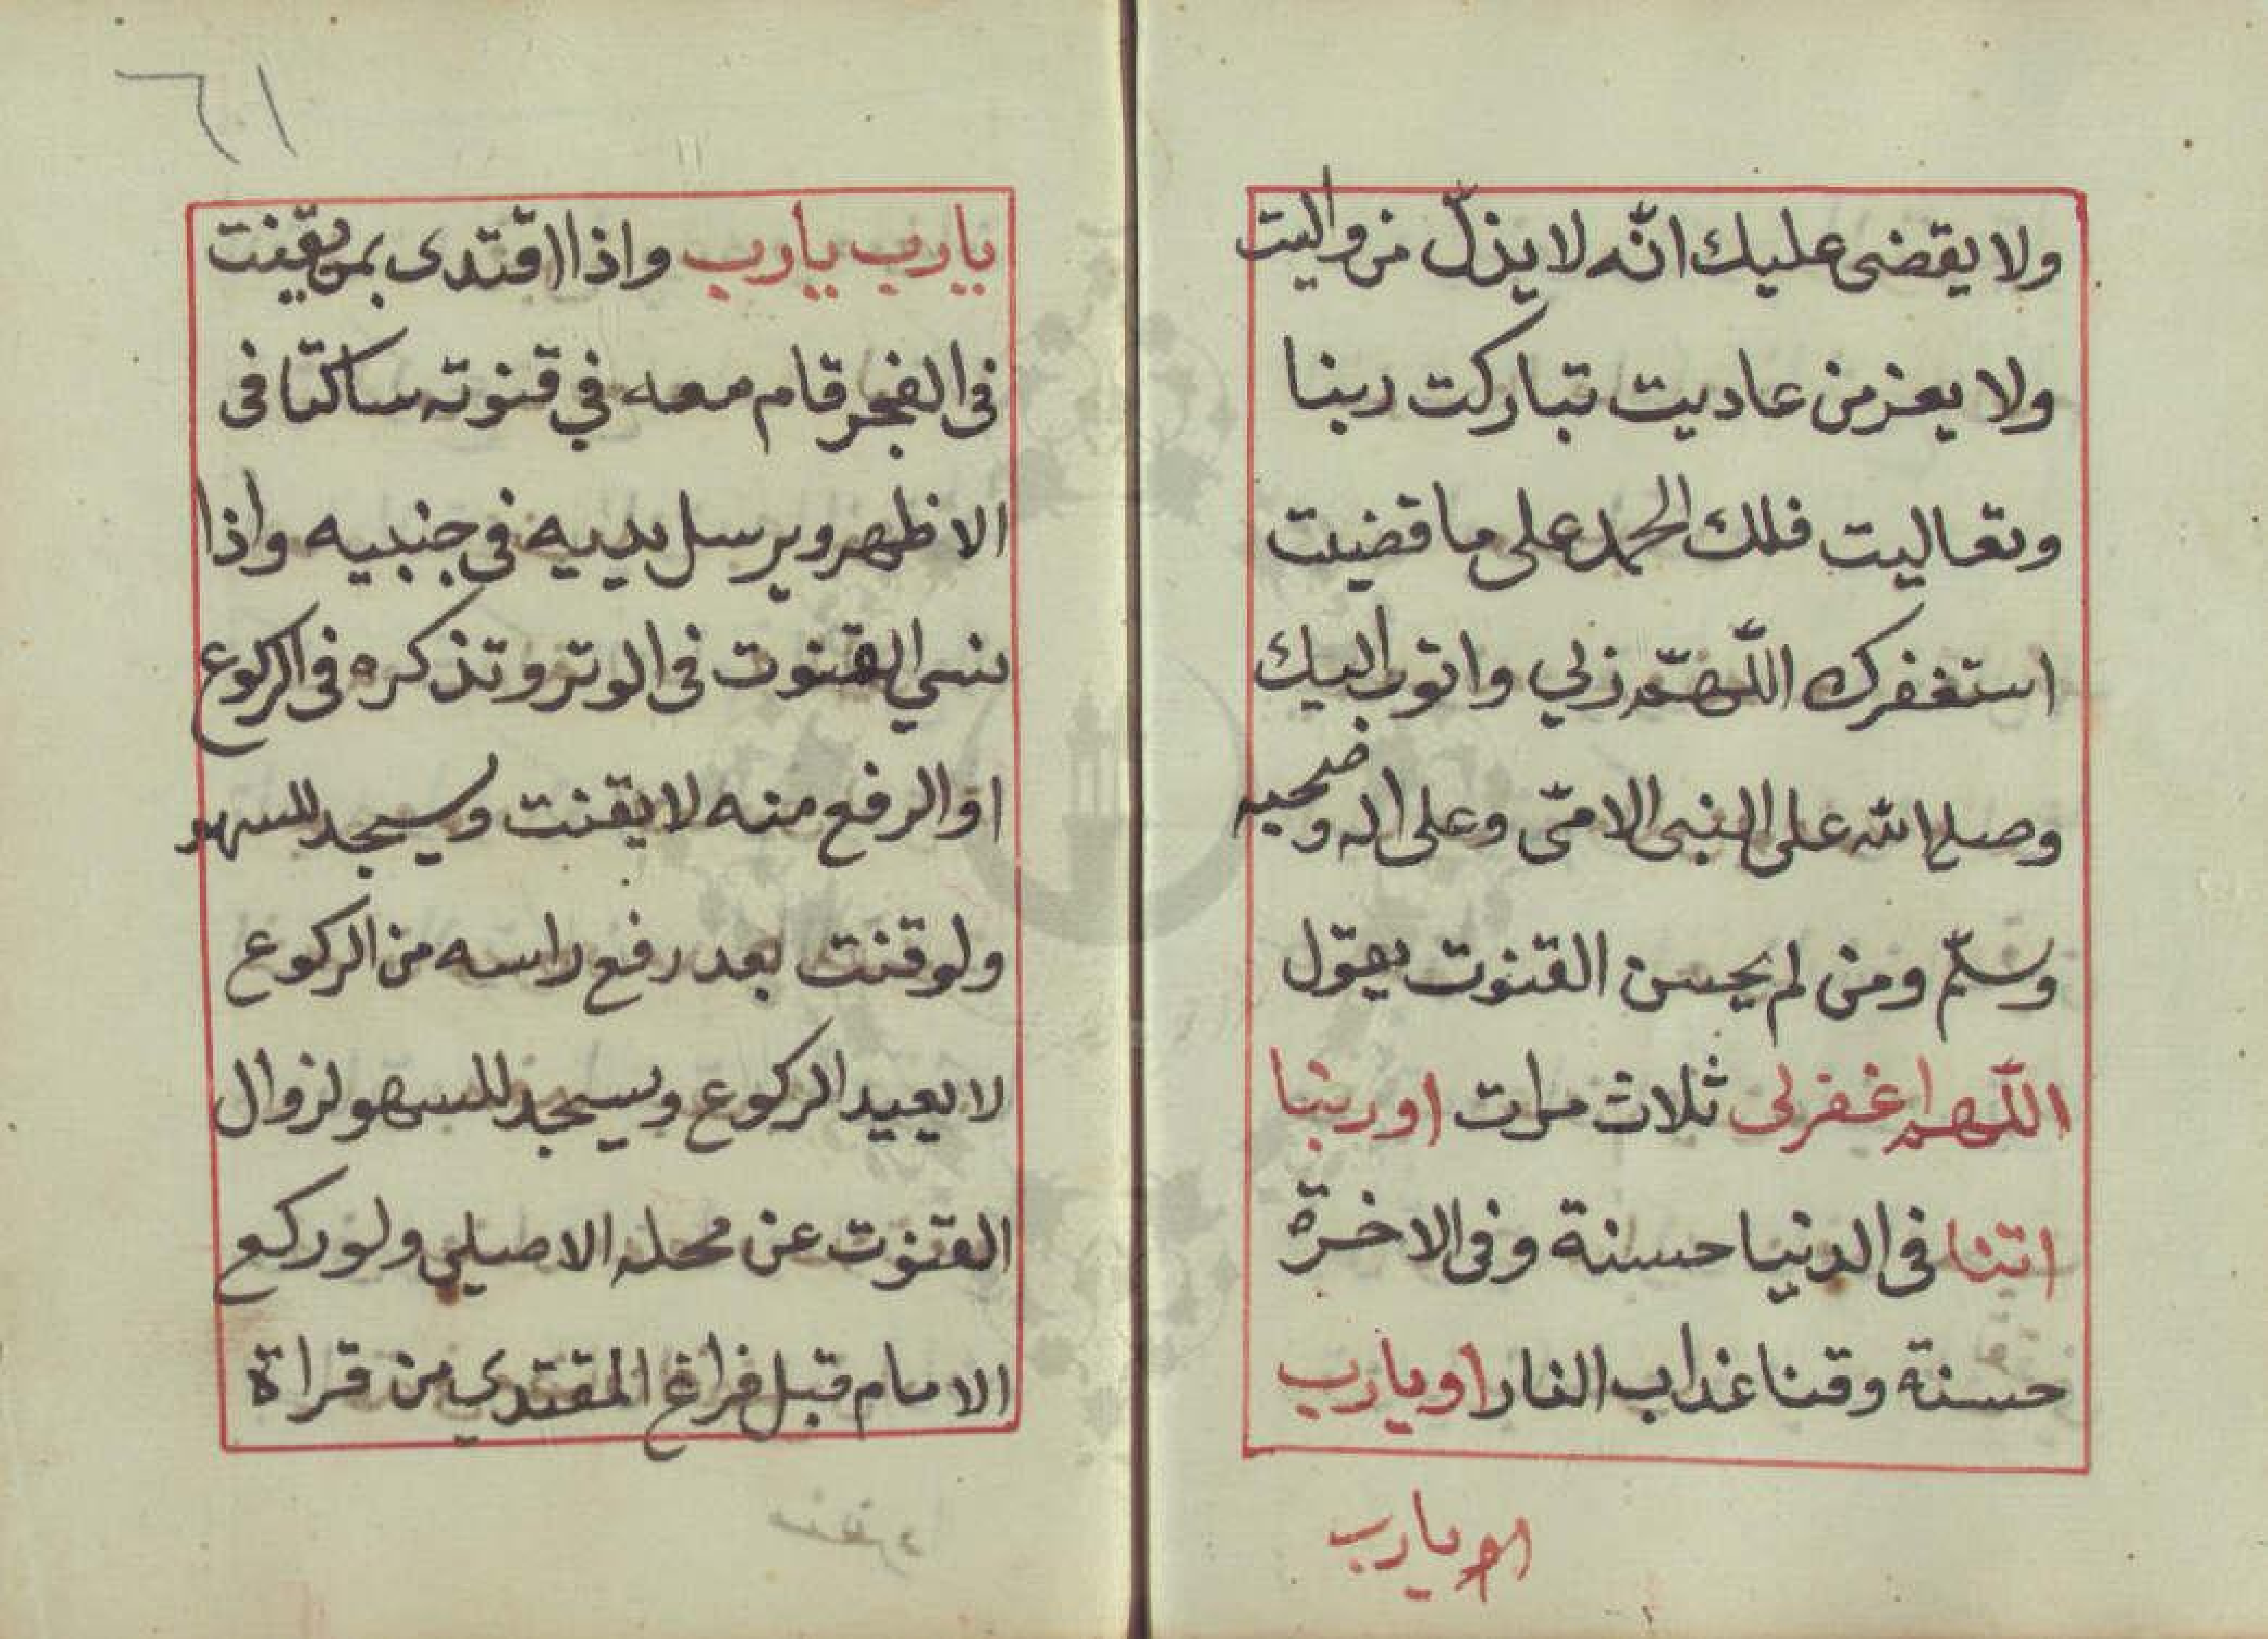 ولا يقضى عليك انّه لا يذلّ من واليت
ولا يعز من عاديت تباركت ربنا
وتعاليت فلك الحمد على ما قضيت
استغفرك اللّهمّ ربي واتوب اليك
وصلى الله على النبى الامّى وعلى اله وصحبه
وسلّم ومن لم يحسن القنوت يقول
اللّهم اغفر لى ثلاث مرات او ربنا
اتنا فى الدنيا حسنة وفى الاخرة
حسنة وقنا عذاب النار او يا رب
يا رب
٦١
يا رب يا رب واذا اقتدى بمن يقنت
فى الفجر قام معه في قنوته ساكتا فى
الاظهر ويرسل يديه فى جنبيه واذا
نسي القنوت فى الوتر وتذكره فى الركوع
او الرفع منه لا يقنت ويسجد للسهو
ولو قنت بعد رفع راسه من الركوع
لا يعيد الركوع ويسجد للسهو لزوال
القنوت عن محله الاصلي ولو ركع
الامام قبل فراغ المقتدي من قراة